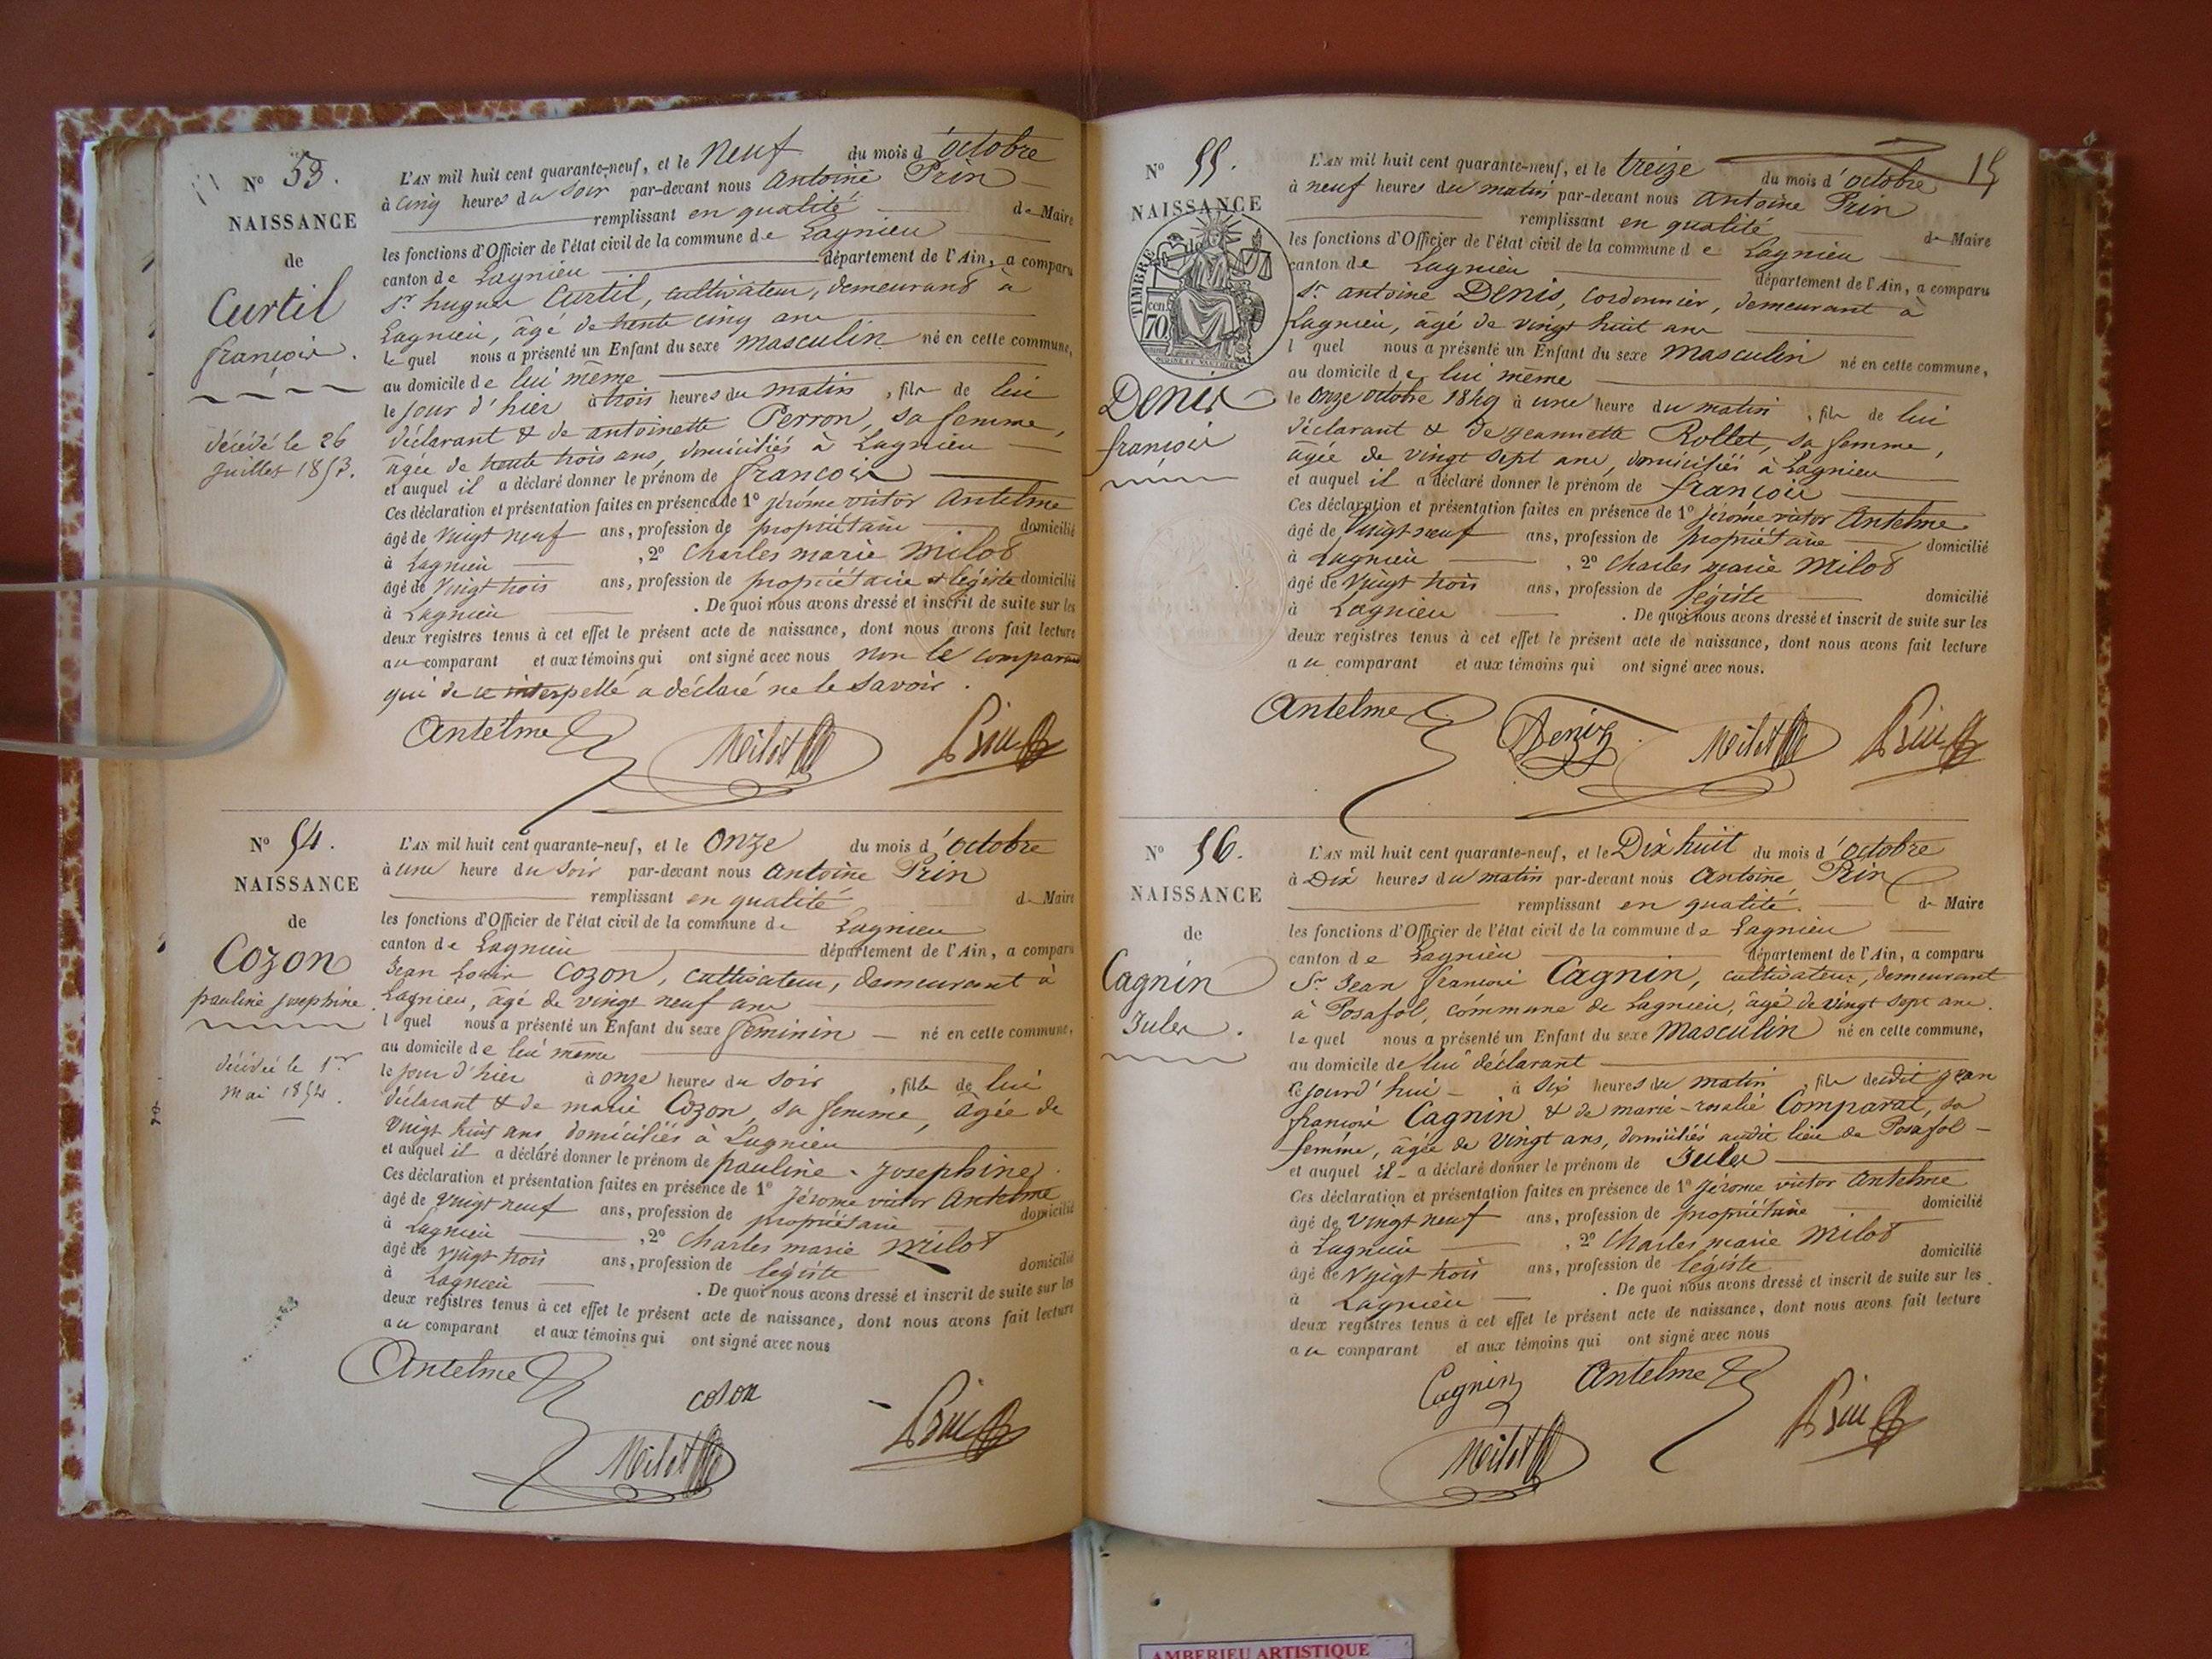 N° 53.
NAISSANCE
de
Curtil
françois.
décédé le 26
juillet 1853.
L'AN mil huit cent quarante-neuf, et le neuf du mois d'octobre
à cinq heures du soir par-devant nous antoine Prin
remplissant en qualité de Maire
les fonctions d'Officier de l'état civil de la commune de Lagnieu
canton de Lagnieu département de l'Ain, a comparu
Sr hugues Curtil, cultivateur, demeurant à
Lagnieu, âgé de trente cinq ans
lequel nous a présenté un Enfant du sexe masculin né en cette commune,
au domicile de lui meme
le jour d'hier à trois heures du matin, fils de lui
déclarant & de antoinette Perron, sa femme,
âgée de trente trois ans, domiciliés à Lagnieu
et auquel il a déclaré donner le prénom de françois
Ces déclaration et présentation faites en présence de 1° jérôme victor antelme
âgé de vingt neuf ans, profession de propriétaire domicilié
à Lagnieu, 2° Charles marie milot
âgé de vingt trois ans, profession de propriétaire et légiste domicilié
à Lagnieu. De quoi nous avons dressé et inscrit de suite sur les
deux registres tenus à cet effet le présent acte de naissance, dont nous avons fait lecture
au comparant et aux témoins qui ont signé avec nous non le comparant
qui de ce interpellé a déclaré ne le savoir.
antelme Milot Prin
N° 54.
NAISSANCE
de
Cozon
pauline josephine.
décédée le 1er
mai 1854.
L'AN mil huit cent quarante-neuf, et le onze du mois d'octobre
à une heure du soir par-devant nous antoine Prin
remplissant en qualité de Maire
les fonctions d'Officier de l'état civil de la commune de Lagnieu
canton de Lagnieu département de l'Ain, a comparu
Jean Louis Cozon, cultivateur, demeurant à
Lagnieu, âgé de vingt neuf ans
l quel nous a présenté un Enfant du sexe feminin né en cette commune,
au domicile de lui même
le jour d'hier à onze heures du soir, fille de lui
déclarant & de marie Cozon, sa femme, âgée de
vingt huit ans domiciliés à Lagnieu
et auquel il a déclaré donner le prénom de pauline - josephine.
Ces déclaration et présentation faites en présence de 1° jérome victor antelme
âgé de vingt neuf ans, profession de propriétaire domicilié
à Lagnieu, 2° Charles marie milot
âgé de vingt trois ans, profession de légiste domicilié
à Lagnieu. De quoi nous avons dressé et inscrit de suite sur les
deux registres tenus à cet effet le présent acte de naissance, dont nous avons fait lecture
au comparant et aux témoins qui ont signé avec nous
antelme coson Prin
Milot
15
N° 55.
NAISSANCE
TIMBRE
70 cen
Denis
françois
L'AN mil huit cent quarante-neuf, et le treize du mois d'octobre
à neuf heures du matin par-devant nous antoine Prin
remplissant en qualité de Maire
les fonctions d'Officier de l'état civil de la commune de Lagnieu
canton de Lagnieu département de l'Ain, a comparu
Sr antoine Denis, cordonnier, demeurant à
Lagnieu, âgé de vingt huit ans
l quel nous a présenté un Enfant du sexe masculin né en cette commune,
au domicile de lui même
le onze octobre 1849 à une heure du matin, fils de lui
déclarant & de jeannette Rollet, sa femme,
âgée de vingt sept ans, domiciliés à Lagnieu
et auquel il a déclaré donner le prénom de françois
Ces déclaration et présentation faites en présence de 1° jérome victor Antelme
âgé de vingt neuf ans, profession de propriétaire domicilié
à Lagnieu, 2° Charles marie milot
âgé de vingt trois ans, profession de légiste domicilié
à Lagnieu. De quoi nous avons dressé et inscrit de suite sur les
deux registres tenus à cet effet le présent acte de naissance, dont nous avons fait lecture
au comparant et aux témoins qui ont signé avec nous.
antelme Denis Milot Prin
N° 56.
NAISSANCE
de
Cagnin
Jules.
L'AN mil huit cent quarante-neuf, et le Dix huit du mois d'octobre
à Dix heures du matin par-devant nous antoine Prin
remplissant en qualité. de Maire
les fonctions d'Officier de l'état civil de la commune de Lagnieu
canton de Lagnieu département de l'Ain, a comparu
Sr Jean françois Cagnin, cultivateur, demeurant
à Posafol, commune de Lagnieu, âgé de vingt sept ans.
lequel nous a présenté un Enfant du sexe masculin né en cette commune,
au domicile de lui déclarant
ce jourd'hui à six heures du matin, fils dudit jean
françois Cagnin & de marie-rosalie Comparat, sa
femme, âgée de vingt ans, domiciliés audit lieu de Posafol
et auquel il a déclaré donner le prénom de Jules
Ces déclaration et présentation faites en présence de 1° jérome victor antelme
âgé de vingt neuf ans, profession de propriétaire domicilié
à Lagnieu, 2° Charles marie milot
âgé de vingt trois ans, profession de légiste domicilié
à Lagnieu. De quoi nous avons dressé et inscrit de suite sur les
deux registres tenus à cet effet le présent acte de naissance, dont nous avons fait lecture
au comparant et aux témoins qui ont signé avec nous
Cagnin antelme Prin
Milot
AMBERIEU ARTISTIQUE